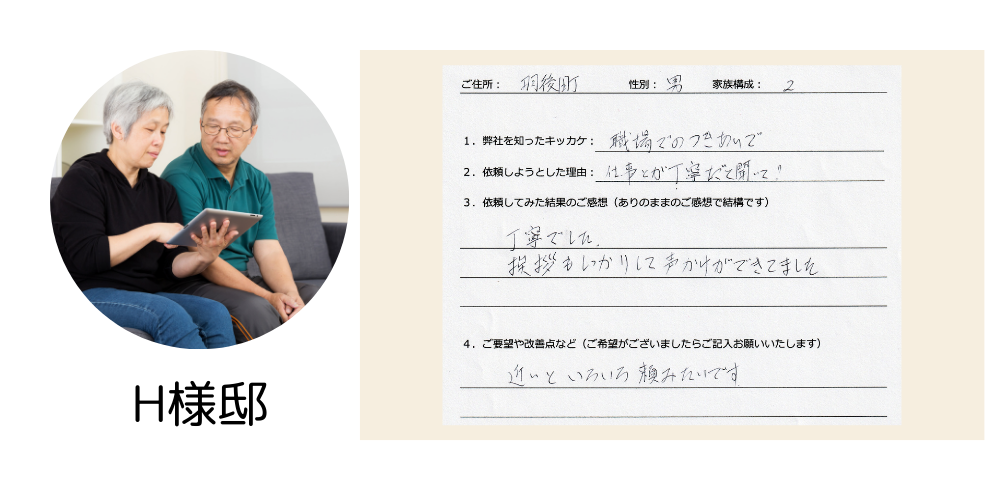 ご住所： 羽後町 性別： 男 家族構成： 2
1．弊社を知ったキッカケ： 職場でのつきあいで
2．依頼しようとした理由： 仕事とが丁寧だと聞いて！
3．依頼してみた結果のご感想（ありのままのご感想で結構です）
丁寧でした.
挨拶もしっかりして声かけができてました
4．ご要望や改善点など（ご希望がございましたらご記入お願いいたします）
近いと いろいろ頼みたいです
H様邸